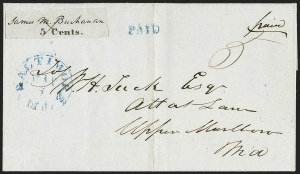 James M. Buchanan
5 Cents.
PAID
paid
5
BALTIMORE
To, W. H. Tuck Esq
Att at Law
Upper Marlboro
Md